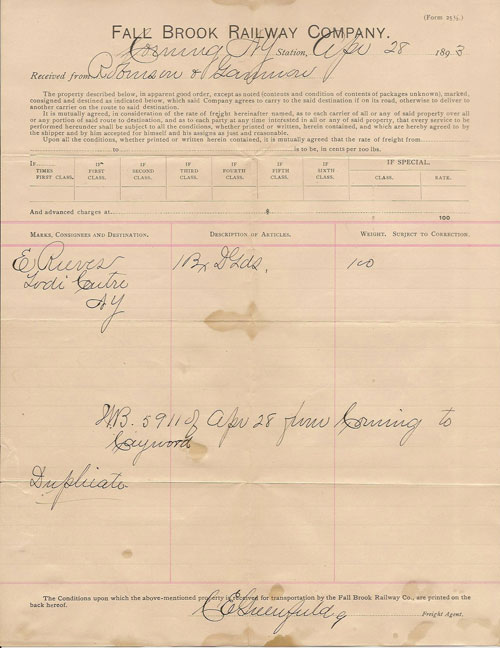 (Form 25½.)
FALL BROOK RAILWAY COMPANY.
Corning NY Station, Apr 28 1893
Received from Robinson &
The property described below, in apparent good order, except as noted (contents and condition of contents of packages unknown), marked,
consigned and destined as indicated below, which said Company agrees to carry to the said destination if on its road, otherwise to deliver to
another carrier on the route to said destination.
It is mutually agreed, in consideration of the rate of freight hereinafter named, as to each carrier of all or any of said property over all
or any portion of said route to destination, and as to each party at any time interested in all or any of said property, that every service to be
performed hereunder shall be subject to all the conditions, whether printed or written, herein contained, and which are hereby agreed to by
the shipper and by him accepted for himself and his assigns as just and reasonable.
Upon all the conditions, whether printed or written herein contained, it is mutually agreed that the rate of freight from
to is to be, in cents per 100 lbs.
IF TIMES FIRST CLASS. IF FIRST CLASS. IF SECOND CLASS. IF THIRD CLASS. IF FOURTH CLASS. IF FIFTH CLASS. IF SIXTH CLASS. IF SPECIAL.
CLASS. RATE.
And advanced charges at $ 100
MARKS, CONSIGNEES AND DESTINATION. DESCRIPTION OF ARTICLES. WEIGHT, SUBJECT TO CORRECTION.
E Reeves 1 Bx D Gds, 100
Lodi Centre
NY
W.B. 5911 of Apr 28 from Corning to
Cayword
Duplicate
The Conditions upon which the above-mentioned property is received for transportation by the Fall Brook Railway Co., are printed on
the back hereof.
C E Greenfield Freight Agent.